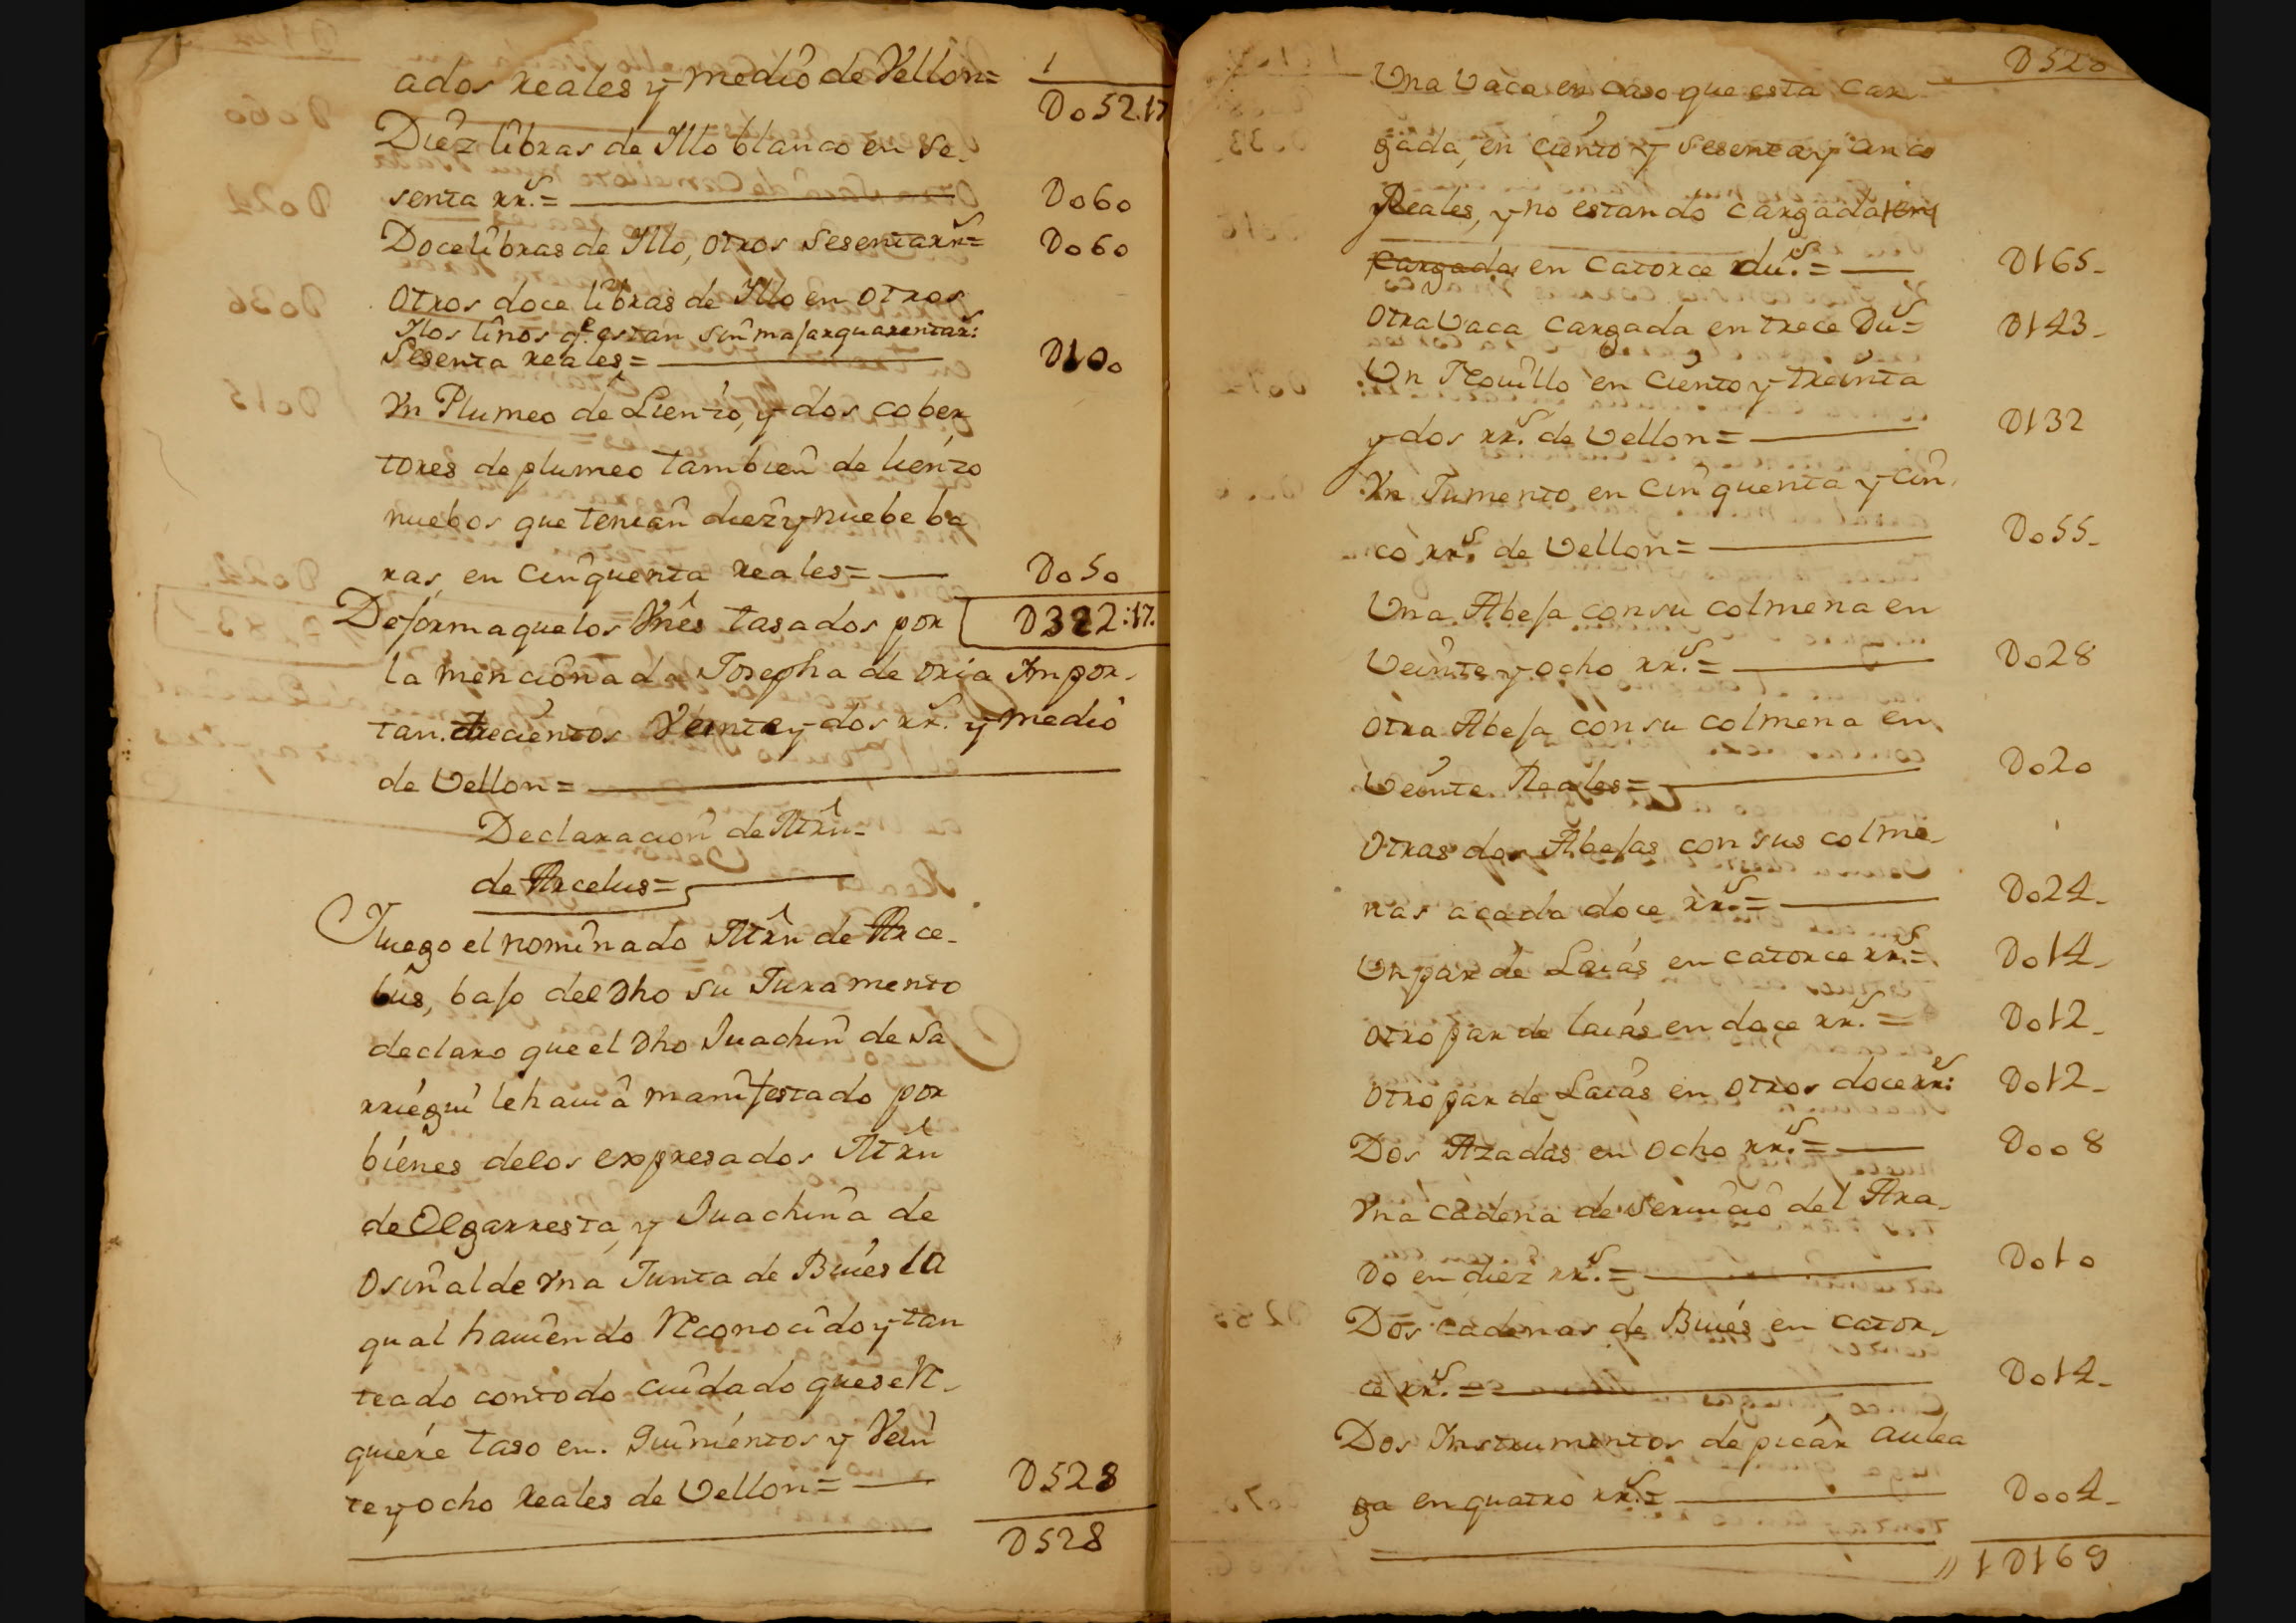 ados reales y medio de Vellon=
Do52.17
Diez libras de Ylo blanco en se-
senta rr.s = Do60
Doce libras de Ylo, otros Sesenta rr.s= Do60
otros doce libras de Ylo en otros
Ylos linos q.e estan sin masar quarenta r.s
Sesenta reales= D100
Yn Plumeo de Lienzo, y dos cober
tores de plumeo tambien de lienzo
nuebos que tenian diez y nuebe ba
ras, en Cinquenta reales= Do50
De forma que los Vnes tasados por D322:17.
la mencionada Josepha de oria Ympor-
tan. trecientos Veinte y dos rr.s y medio
de Vellon=
Declaracion de Mrn
de Arcelus=
Yluego el nominado Mrn de Arce-
lus, bajo del Dho su Juramento
declaro que el Dho Juachin de Sa
rriegui le havia manifestado por
bienes delos expresados Mrn
de Olgarresta, y Juachina de
Osinalde Yna Junta de Bueies la
qual haviendo Reconocido y tan
teado con todo Cuidado que se Re-
quiere taso en. Quinientos y Vein
te y ocho reales de Vellon= D528
D528
D528
Una Vaca en caso que esta Car
gada, en Ciento y Sesenta y Cinco
Reales, y no estando Cargada
Cargada en Catorce du.s = D165-
Otra Vaca Cargada en trece Du.s= D143-
Un Novillo en Ciento y treinta
y dos rr.s de Vellon= D132
Yn Jumento en Cinquenta y Cin
co rr.s de Vellon= Do55-
Una Abeja con su colmena en
Veinte y ocho rr.s= Do28
otra Abeja con su colmena en
Veinte Reales= Do20
Otras dos Abejas con sus colme-
nas a cada doce rr.s= Do24-
Un par de Laias en catorce rr.s= Do14-
otro par de laias en doce rr.s= Do12-
otro par de Laias en otros doce rr.s Do12-
Dos Azadas en ocho rr.s= Doo8
Yna cadena de servicio del Ara-
do en diez rr.s= Do10
Dos cadenas de Bueies en cator-
ce rr.s= Do14-
Dos Ynstrumentos de picar aulea
ga en quatro rr.s= Doo4-
1D169